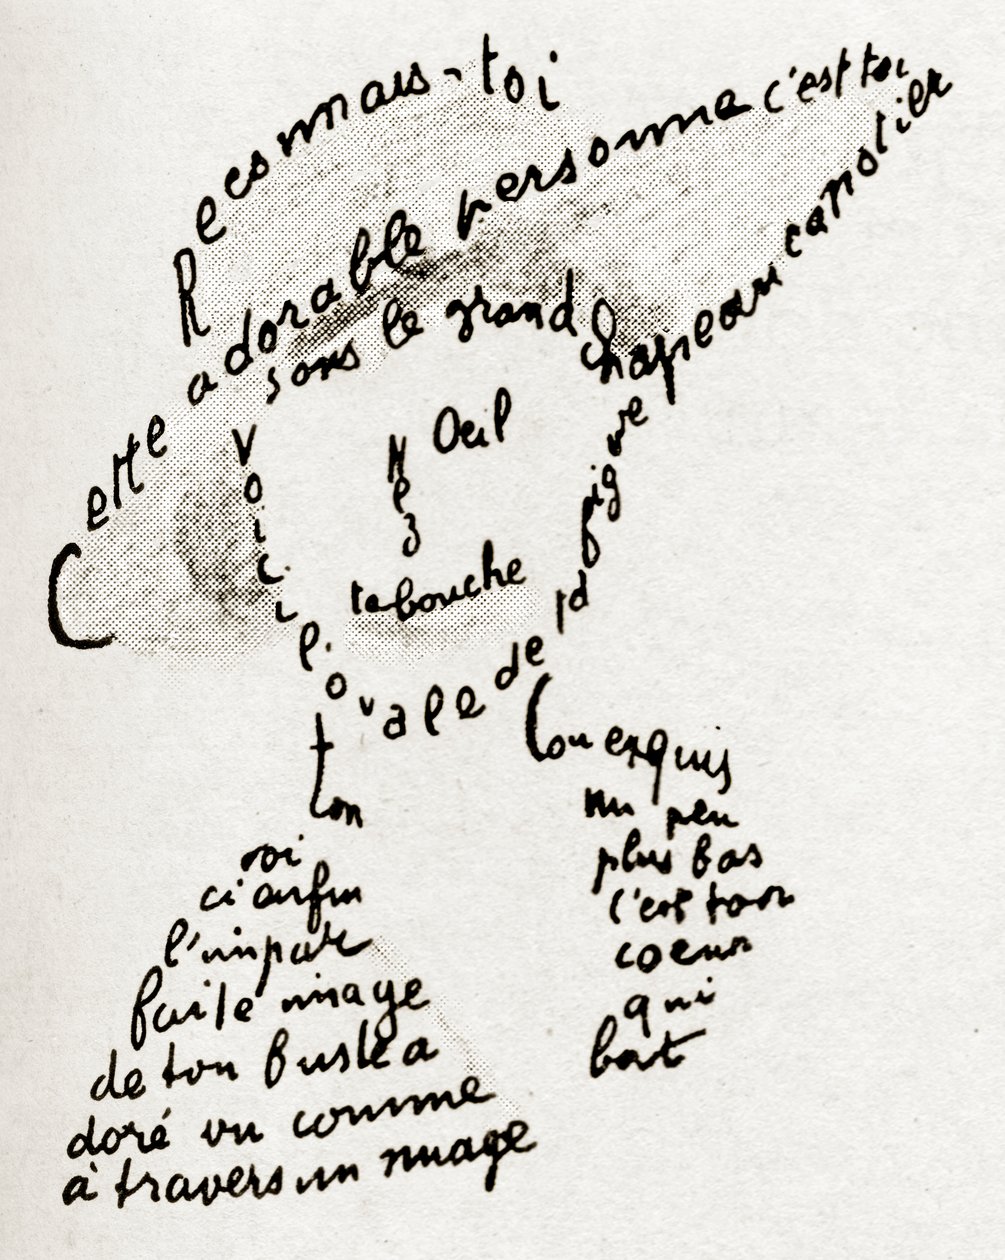 Reconnais-toi
Cette adorable personne c'est toi
sous le grand chapeau canotier
Oeil
Nez
ta bouche
Voici l'ovale de ta figure
ton
Cou exquis
un peu
plus bas
c'est ton
coeur
qui
bat
voi
ci enfin
l'impar
faite image
de ton buste a
doré vu comme
à travers un nuage